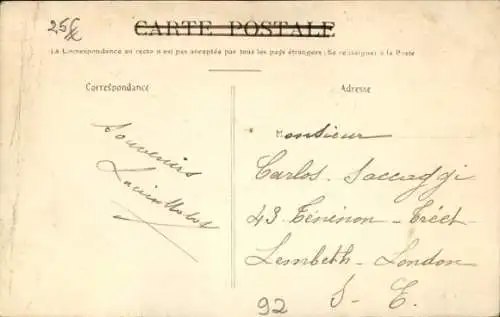 25
CARTE POSTALE
La Correspondance au recto n'est pas acceptée par tous les pays étrangers (Se renseigner à la Poste
Correspondance
Adresse
Monsieur
Souvenirs
Carlos. Saccaggi
43. Téninon - Tréet
Lembeth - London
S - E.
92